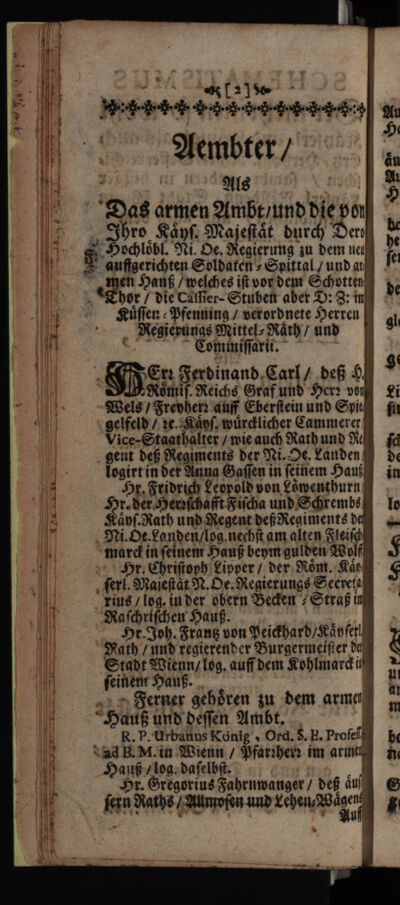 [2]
Aembter /
Als
Das armen Ambt / und die von
Ihro Käys. Majestät durch Dero
Hochlöbl. Ni. Oe. Regierung zu dem neu
auffgerichten Soldaten-Spittal / und ar-
men Hauß / welches ist vor dem Schotten-
Thor / die Cassier-Stuben aber D: Z: im
Küssen-Pfenning / verordnete Herren
Regierungs Mittel-Räth / und
Commissarii.
HErr Ferdinand Carl / deß H.
Römis. Reichs Graf und Herr von
Wels / Freyherr auff Eberstein und Spie-
gelfeld / ꝛc. Käys. würcklicher Cammerer
Vice-Staathalter / wie auch Rath und Re-
gent deß Regiments der Ni. Oe. Landen /
logirt in der Anna Gassen in seinem Hauß
Hr. Fridrich Leopold von Löwenthurn
Hr. der Herrschafft Fischa und Schrembs
Käys. Rath und Regent deß Regiments der
Ni. Oe. Landen / log. nechst am alten Fleisch-
marck in seinem Hauß beym gulden Wolf
Hr. Christoph Lipper / der Röm. Käy-
serl. Majestät N. Oe. Regierungs Secreta-
rius / log. in der obern Becken-Straß im
Raschrischen Hauß.
Hr. Joh. Frantz von Peickhard / Käyserl.
Rath / und regierender Burgermeister der
Stadt Wienn / log. auff dem Kohlmarck in
seinem Hauß.
Ferner gehören zu dem armen
Hauß und dessen Ambt.
R. P. Urbanus König, Ord. S. B. Profess.
ad B. M. in Wienn / Pfarrherr im armen
Hauß / log. daselbst.
Hr. Gregorius Fahrnwanger / deß äus-
sern Raths / Allmosen und Lehen-Wägens
Auff